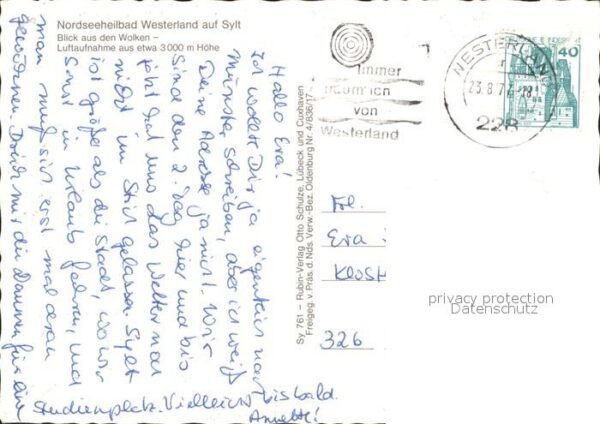 Nordseeheilbad Westerland auf Sylt
Blick aus den Wolken –
Luftaufnahme aus etwa 3000 m Höhe
Hallo Eva!
Ich wollte Dir ja eigentlich nach
Münster schreiben, aber ich weiß
Deine Adresse ja nicht. Wir
sind den 2. Tag hier und bis
jetzt hat uns das Wetter noch
nicht im Stich gelassen. Sylt
ist größer als die Stadt, wo wir
sonst in Urlaub fahren, und
man muß sich erst mal daran
gewöhnen. Drück mir die Daumen für ein
Studienplatz. Vielleicht bis bald.
Annette!
Sy 761 – Rubin-Verlag Otto Schulze, Lübeck und Cuxhaven
Freigeg. v. Präs. d. Nds. Verw.-Bez. Oldenburg Nr. 4/636/17
immer
von
Westerland
WESTERLAND
23.8.7
228
40
Frl.
Eva
Klost
326
privacy protection
Datenschutz